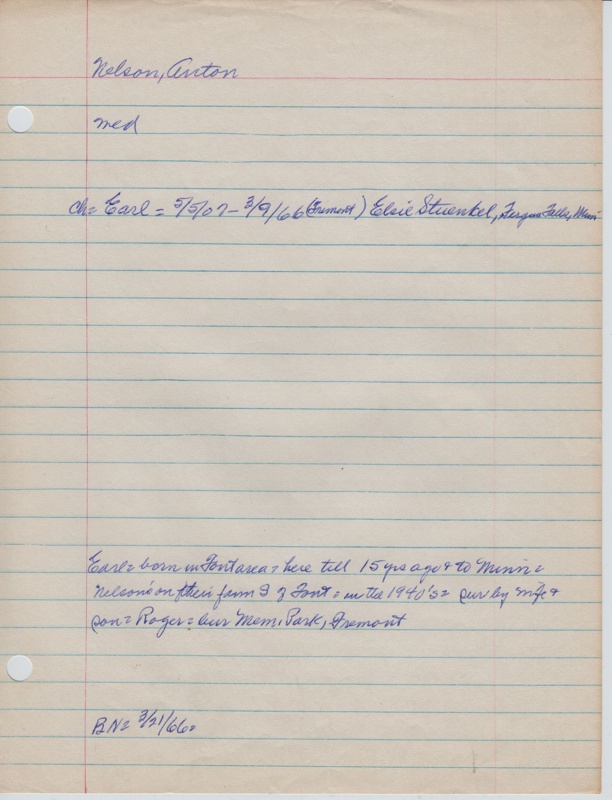 Nelson, Anton
med
ch= Earl = 5/5/07 - 3/9/66 (Fremont) Elsie Stuenkel, Fergus Falls, Minn
Earl= born in Font area = here till 15 yrs ago & to Minn =
Nelson's on their farm S of Font = in the 1940's = sur by wife &
son = Roger = bur Mem. Park, Fremont
BN= 3/21/66=